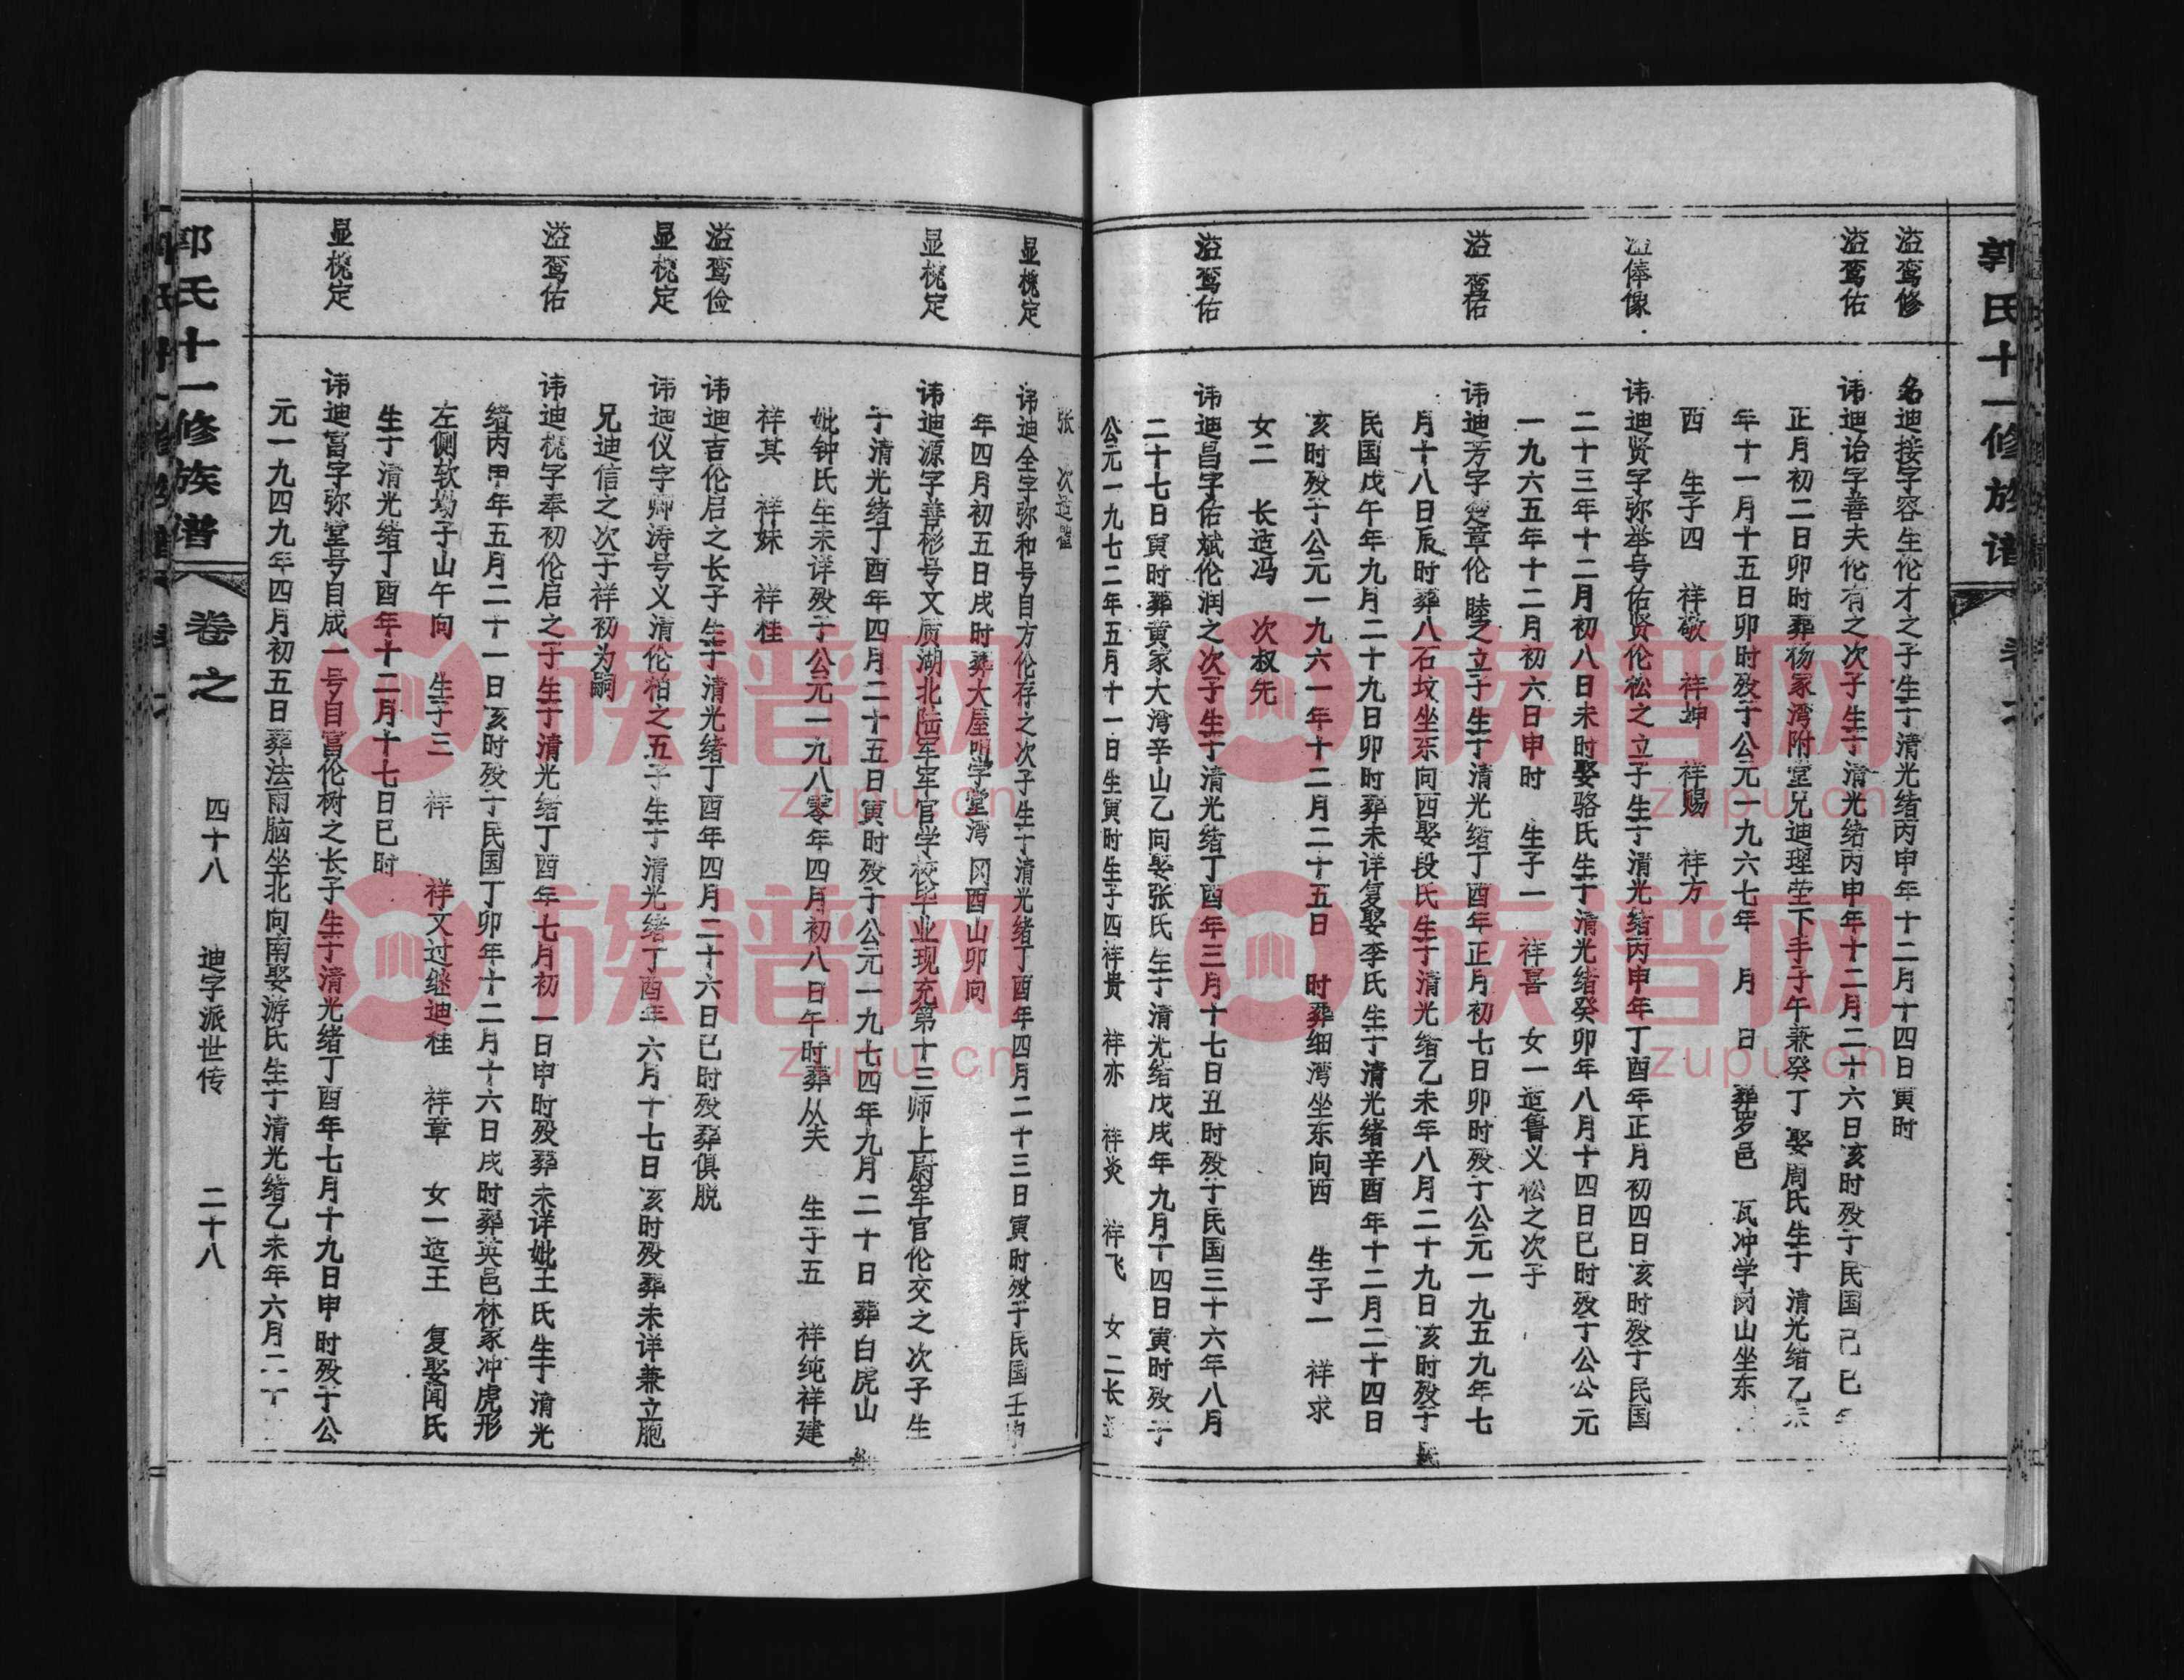 郭氏十一修族谱
溢鸾修
名迪接字容生伦才之子生于清光绪丙申年十二月十四日寅时
溢鸾佑
讳迪诒字善夫伦有之次子生于清光绪丙申年十二月二十六日亥时殁于民国己巳年
正月初二日卯时葬杨家湾附堂兄迪理茔下手子午兼癸丁娶周氏生于清光绪乙未
年十一月十五日卯时殁于公元一九六七年 月 日 葬罗邑 瓦冲学岗山坐东
西 生子四 祥敬 祥坤 祥赐 祥方
溢俸像
讳迪贤字弥举号佑贤伦松之立子生于清光绪丙申年丁酉年正月初四日亥时殁于民国
二十三年十二月初八日未时娶骆氏生于清光绪癸卯年八月十四日巳时殁于公公元
一九六五年十二月初六日申时 生子一 祥喜 女一适鲁义松之次子
溢鸾佑
讳迪芳字楚章伦睦之立子生于清光绪丁酉年正月初七日卯时殁于公元一九五九年七
月十八日辰时葬八石坟坐东向西娶段氏生于清光绪乙未年八月二十九日亥时殁于
民国戊午年九月二十九日卯时葬未详复娶李氏生于清光绪辛酉年十二月二十四日
亥时殁于公元一九六一年十二月二十五日 时葬细湾坐东向西 生子一 祥求
女二 长适冯 次叔先
溢鸾佑
讳迪昌字佑斌伦润之次子生于清光绪丁酉年三月十七日丑时殁于民国三十六年八月
二十七日寅时葬黄家大湾辛山乙向娶张氏生于清光绪戊戌年九月十四日寅时殁于
公元一九七二年五月十一日生寅时生子四祥贵 祥亦 祥炎 祥飞 女二长适
张 次适瞿
显榥定
讳迪全字弥和号自方伦存之次子生于清光绪丁酉年四月二十三日寅时殁于民国壬申
年四月初五日戌时葬大屋咀学堂湾冈酉山卯向
显榥定
讳迪源字善彬号文质湖北陆军军官学校毕业现充第十三师上尉军官伦交之次子生
于清光绪丁酉年四月二十五日寅时殁于公元一九七四年九月二十日葬白虎山
妣钟氏生未详殁于公元一九八零年四月初八日午时葬从夫 生子五 祥纯祥建
祥其 祥妹 祥桂
溢鸾俭
讳迪吉伦启之长子生于清光绪丁酉年四月二十六日巳时殁葬俱脱
显榥定
讳迪仪字卿涛号义清伦柏之五子生于清光绪丁酉年六月十七日亥时殁葬未详兼立胞
兄迪信之次子祥初为嗣
溢鸾佑
讳迪榥字奉初伦启之子生于清光绪丁酉年七月初一日申时殁葬未详妣王氏生于清光
绪丙申年五月二十一日亥时殁于民国丁卯年十二月十六日戌时葬英邑林家冲虎形
左侧软坳子山午向 生子三 祥 祥文过继迪桂 祥章 女一适王 复娶闻氏
生于清光绪丁酉年十二月十七日巳时
显榥定
讳迪富字弥堂号自成一号自富伦树之长子生于清光绪丁酉年七月十九日申时殁于公
元一九四九年四月初五日葬法雨脑坐北向南娶游氏生于清光绪乙未年六月二十
郭氏十一修族谱
卷之
四十八
迪字派世传
二十八
族谱网
zupu.cn
族谱网
zupu.cn
族谱网
zupu.cn
族谱网
zupu.cn